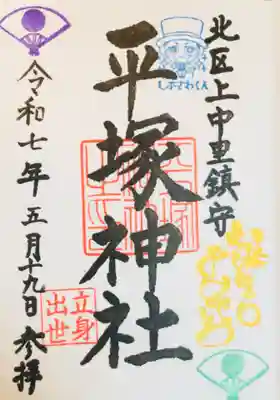 北区上中里鎮守
しぶさわくん
平塚神社
立身
出世
令和七年五月十九日 参拝